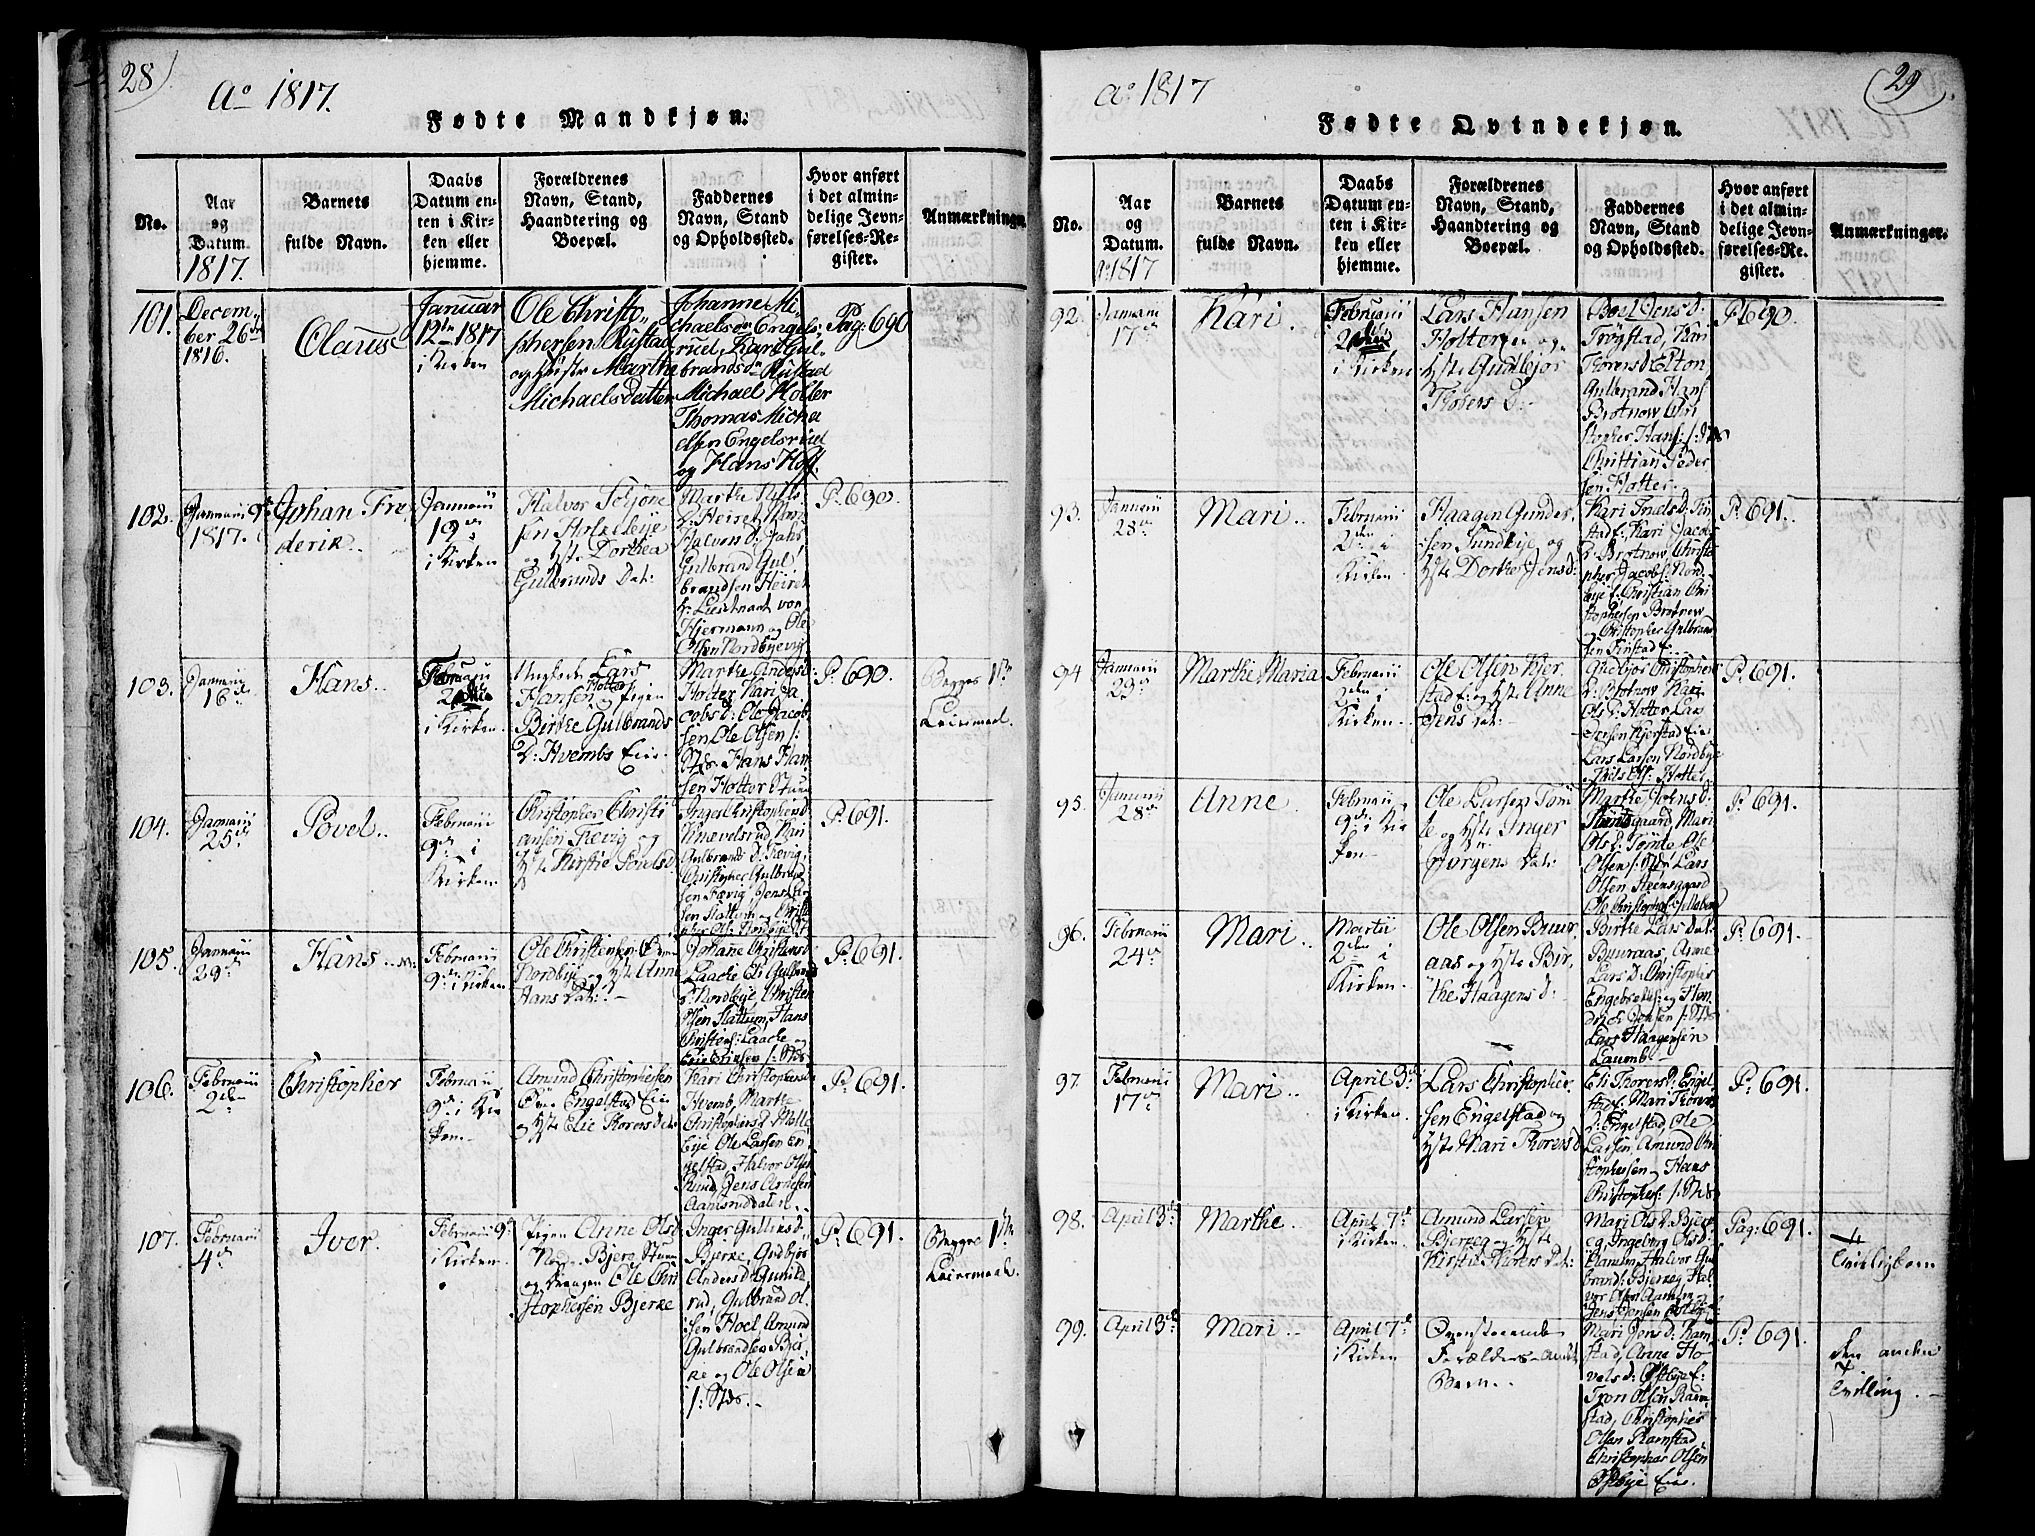 28
Aº 1817.
Fødte Mandkjøn.
No.
Aar
og
Datum.
1817.
Barnets
fulde Navn.
Daabs
Datum en-
ten i Kir-
ken eller
hjemme.
Forældrenes
Navn, Stand,
Haandtering og
Boepæl.
Faddernes
Navn, Stand
og Opholdssted.
Hvor anført
i det almin-
delige Jevn-
førelses-Re-
gister.
Anmærkninger.
101.
Decem-
ber 26de
1816.
Olaus
Januar
12te 1817
i Kirken
Ole Christo-
phersen Rustad
og Hustr Marthe
Michaels Datter
Johanne Mi
chaelsdr Engels-
rud, Kari Gul-
brandsdr Rustad
Michael Holter
Thomas Micha
elsen Engelsrud
og Hans Hoff.
Pag: 690
102.
Januarii 9de
1817.
Johan Fre-
derik.
Januarii
19de
i Kirken
Halvor
og Hste Dorthea
Gulbrands Dat:
Marthe Nils
Gulbrand Gul
brandsen
Lieutnant von
Hjermann og Ole
Olsen Nordbyevig
P: 690.
103.
Januarii
16de
Hans.
Februarii
2den
i Kirken
Ungkarl Lars
Hansen Holter og Pigen
Birthe Gulbrands
D: Hvembs Eie.
Marthe Anders D:
Holter Kari Ja
cobs D: Ole Jacob
sen Ole Olsen
Hans Han
sen Holter
P: 690.
Begges 1ste
Leiermaal.
104.
Januarii
25de
Povel.
Februarii
9de i
Kirken
Christopher Christi
ansen Fævig og
Hste Kirstie Povels D:
Inger Christophersd
Knavelsrud Kari
Gulbrands D: Fævig,
Christopher Gulbrand
sen Fævig, Jens
P: 691.
105.
Januarii
29de
Hans.
Februarii
9de i Kirken
Ole Christensen
Nordbye og Hste Anne
Hans Dat:
Johane Christens D:
Laache Eli Gulbrands
D: Nordbye, Christen
Olsen Hattum, Hans
Christens: Laache og
P: 691.
106.
Februarii
2den
Christopher
Februarii
9de i Kir
ken
Amund Christophersen
Engelstad Eie
og Hste Elie Thorers Dat:
Kari Christophers D
Hvemb, Marthe
Christophers D Mølle
bye Ole Larsen En
gelstad, Halvor Olsen
Rud, Jens Arnesen
Aamodtdalen.
P: 691.
107.
Februarii
4de
Iver.
Februarii 9de
i Kirken
Pigen Anne Ols D
og Drengen Ole Chri
stophersen Bjerke
Inger Gulliks D:
Bjerke, Gudbjør
Anders D: Gunild
rud, Gulbrand Ol
sen Hoel Amund
Gulbrandsen Bjer
ke og Ole Olsen
P: 691.
Begges 1ste
Leiermaal.
29
Aº 1817
Fødte Qvindekjøn.
No.
Aar
og
Datum.
Aº 1817
Barnets
fulde Navn.
Daabs
Datum en-
ten i Kir-
ken eller
hjemme.
Forældrenes
Navn, Stand,
Haandtering og
Boepæl.
Faddernes
Navn, Stand
og Opholdssted.
Hvor anført
i det almin-
delige Jevn-
førelses-Re-
gister.
Anmærkninger.
92.
Januarii
17de
Kari.
Februarii
2den
i Kirken
Lars Hansen
Holter og
Hste Gudbjør
Thorers D:
Boel Jens D:
Trøgstad, Kari
Thorers D: Elton
Gulbrand Hans
Brotnow Chri
stopher Hans:
Christian Peder
sen Holter.
P: 690.
93.
Januarii
28de
Mari.
Februarii
2den i
Kirken
Haagen Gunder
sen Sundbye og
Hste Dorthe Jens D:
Kari
Kari Jacobs
D: Brotnow Christo
pher Jacobs: Nord
bye: Christian Chri
stophersen Brotnow
og Christopher Gulbrand
sen
P: 691.
94
Januarii
29de
Marthe Maria
Februarii
2den i
Kirken.
Ole Olsen Kjer
stad: og Hste Anne
Jens Dat:
Gudbjør Christophers
D: Brotnow Kari
Ols D: Holter Lars
Jensen Kjerstad Eie
Lars Larsen Nordbye
Nils Ols: Holter
P: 691.
95.
Januarii
28de
Anne.
Februarii
9de i Kir
ken
Ole Larsen Tom
te og Hste Inger
Jørgens Dat:
Marthe Johns D:
Steensgaard, Mari
Ols D: Tomte Ole
Olsen, Lars
Olsen Steensgaard
Ole Christophers:
P: 691.
96.
Februarii
24de
Mari.
Martii
2den i
Kirken.
Ole Olsen Buur-
aas og Hste Bir-
the Haagens D:
Birthe Lars Dat:
Buuraas, Anne
Lars D: Christopher
Engebrets: og
Lars Haagensen
P: 691.
97.
Februarii
17de
Mari.
April 3de
i Kirken.
Lars Christopher
sen Engelstad og
Hste Mari Thorers D.
Eli Thorers D: Engel
stad: Mari Thorers
D: Engelstad Ole
Larsen, Amund Chri
stophersen, Hans
Christophers:
P: 691.
98.
April 3de
Marthe.
April 7de
i Kirken
Amund Larsen
Bjerkeg og Hste
Kirstie Thorers Dat:
Mari Ols D: Bjerk
eg Ingeborg Ols D:
Halvor Gul
brands: Bjerkeg Hal
vor Ols:
Jens Jensen
Pag: 691.
Tvillingbarn
99.
April 3de
Mari.
April 7de
i Kirken
Ovenstaaende
Forældres andet
Barn.
Mari Jens D: Ram
stad, Anne Ho
vels D: Østbye:
Tron Olsen Ram
stad, Christopher
Olsen Ramstad
Christopher Olsen
Østbye Eie.
P: 691.
den anden
Tvilling.